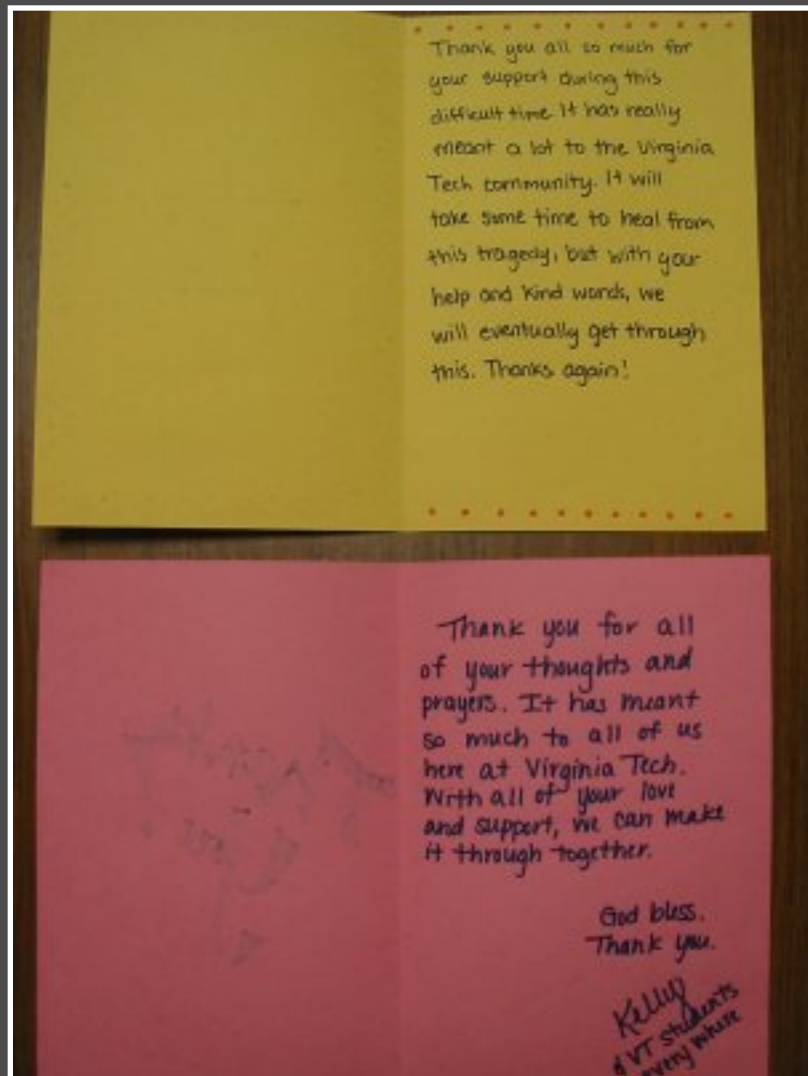 Thank you all so much for
your support during this
difficult time. It has really
meant a lot to the Virginia
Tech community. It will
take some time to heal from
this tragedy, but with your
help and kind words, we
will eventually get through
this. Thanks again!
Thank you for all
of your thoughts and
prayers. It has meant
so much to all of us
here at Virginia Tech.
With all of your love
and support, we can make
it through together.
God bless.
Thank you.
Kelly
& VT students
every where